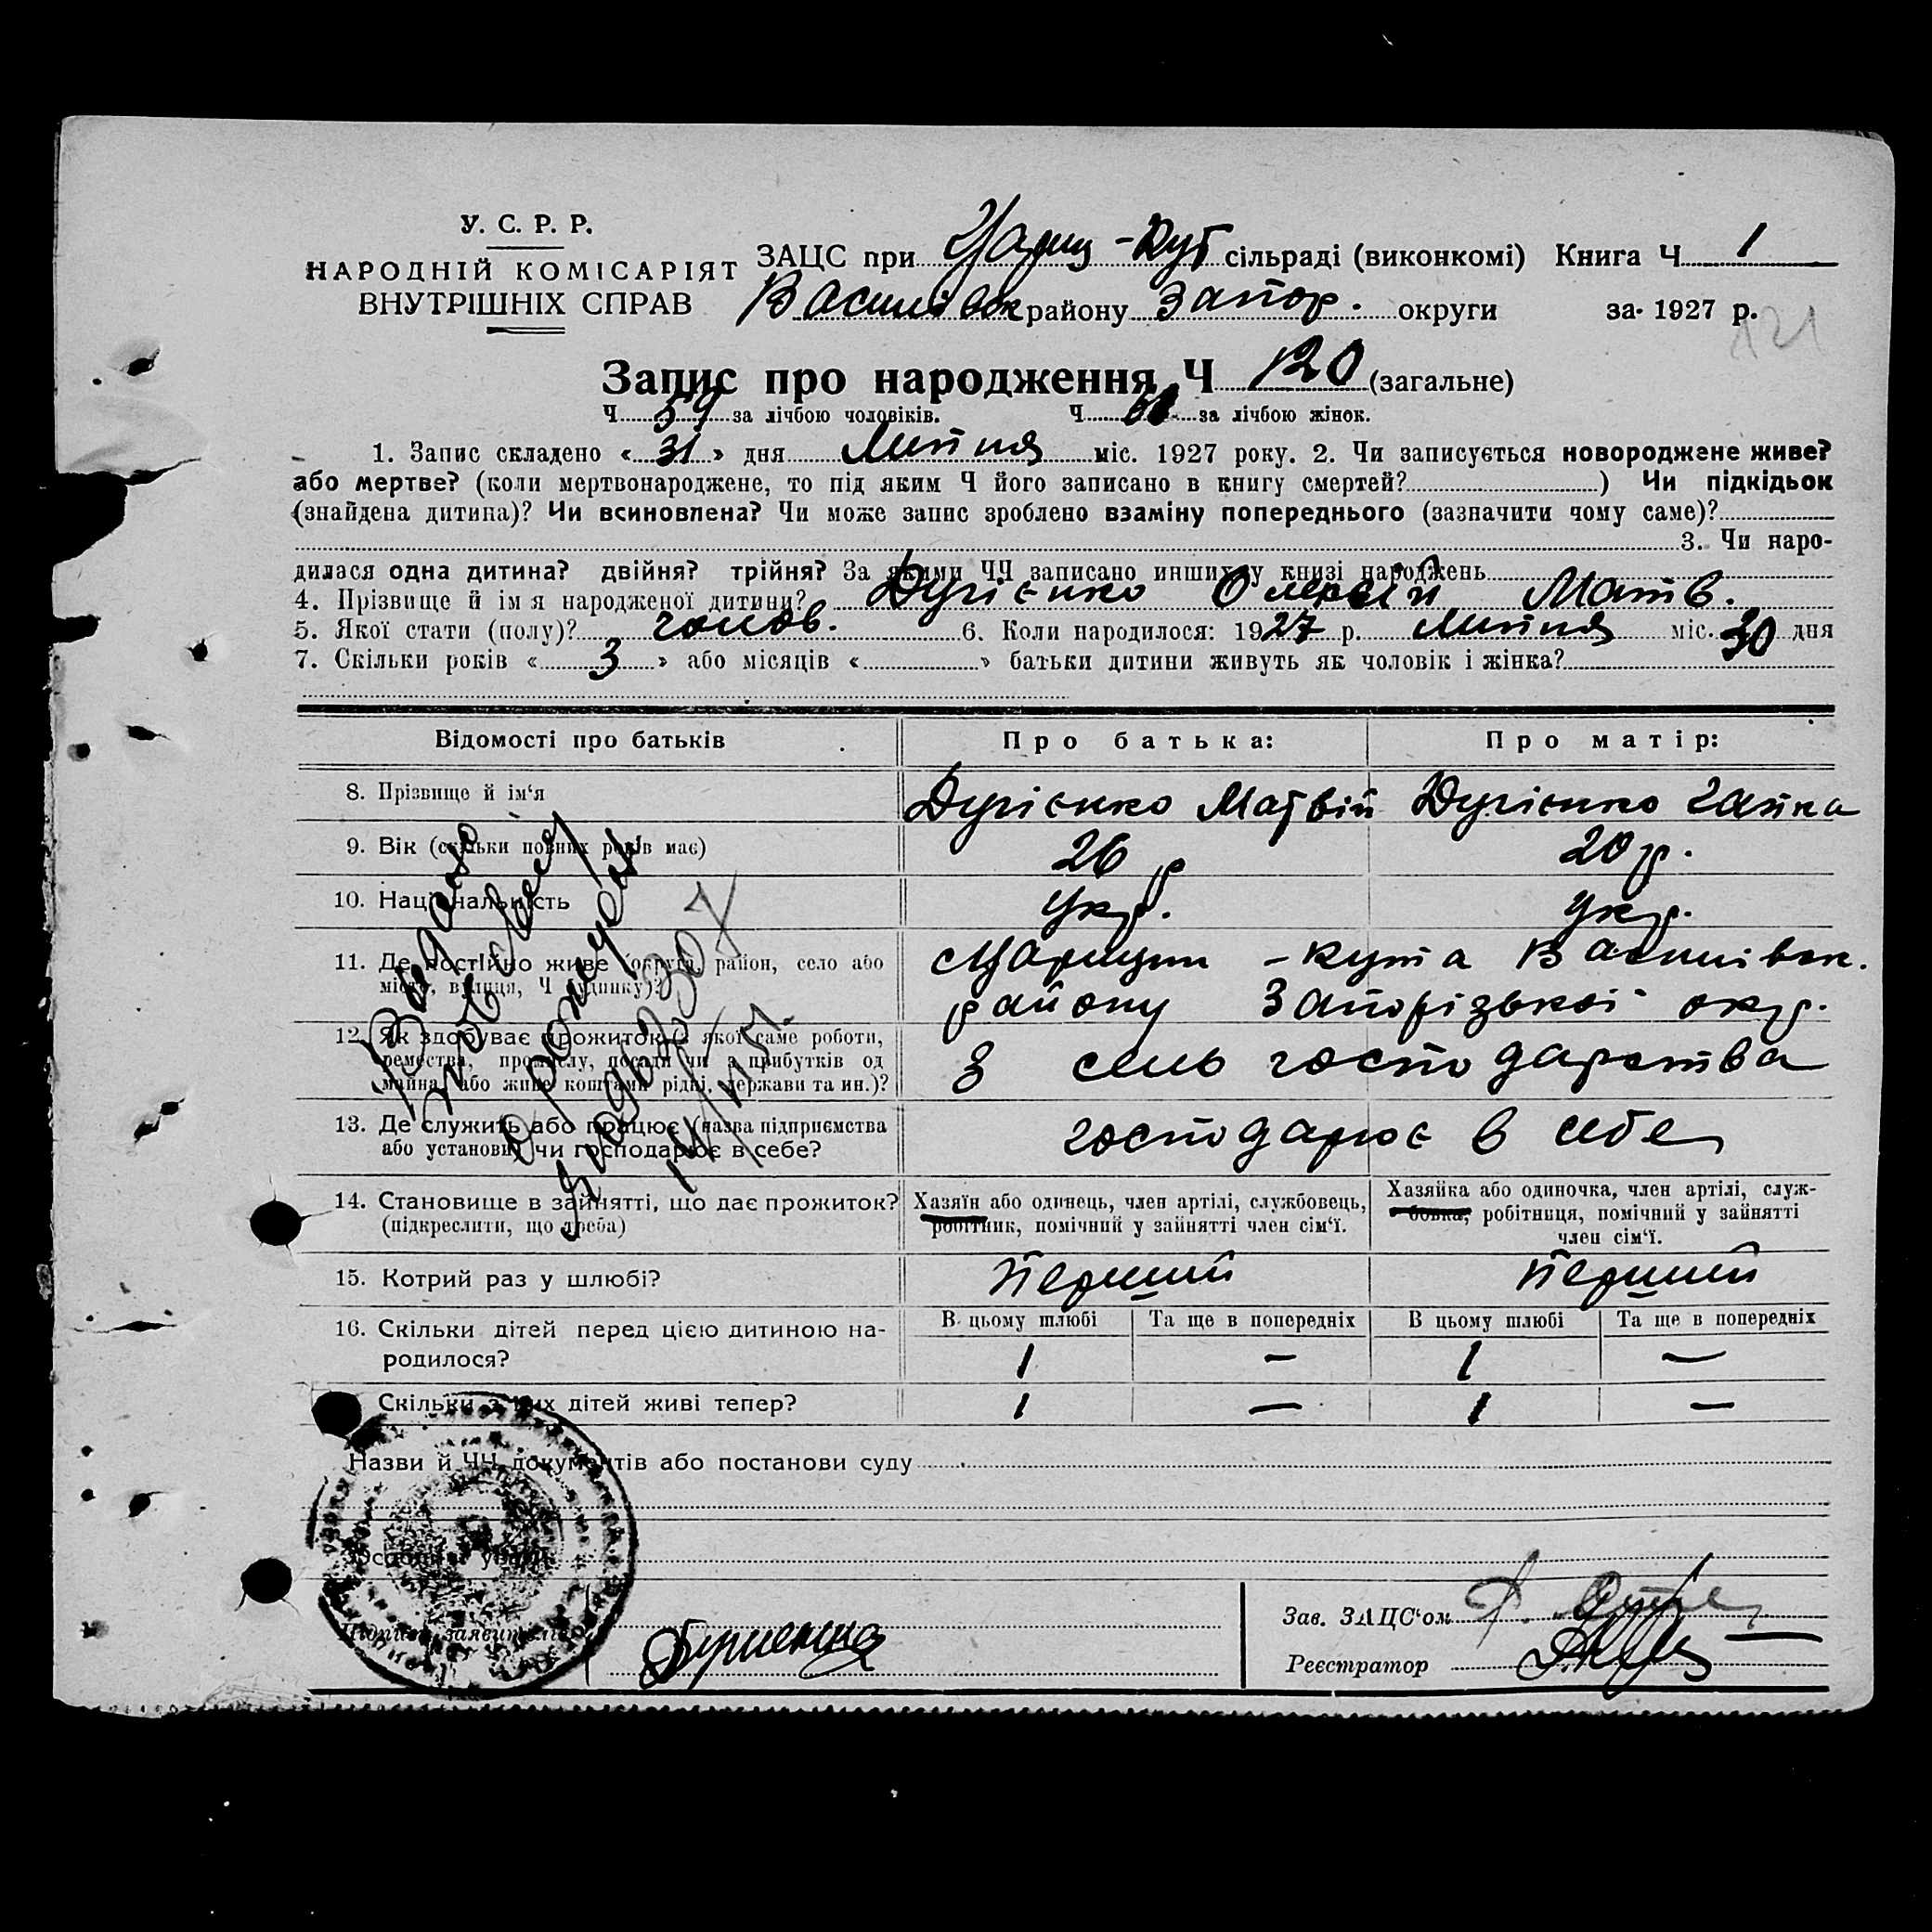 У. С. Р. Р.
НАРОДНІЙ КОМІСАРІЯТ
ВНУТРІШНІХ СПРАВ
ЗАЦС при Цариц-Кут сільраді (виконкомі) Книга Ч 1
Василівок району Запор. округи за 1927 р.
121
Запис про народження Ч 120 (загальне)
Ч 59 за лічбою чоловіків. Ч за лічбою жінок.
1. Запис складено « 31 » дня Липня міс. 1927 року. 2. Чи записується новороджене живе?
або мертве? (коли мертвонароджене, то під яким Ч його записано в книгу смертей? ) Чи підкідьок
(знайдена дитина)? Чи всиновлена? Чи може запис зроблено взаміну попереднього (зазначити чому саме)?
3. Чи наро-
дилася одна дитина? двійня? трійня? За якими ЧЧ записано инших у книзі народжень
4. Прізвище й імя народженої дитини? Дугієнко Олексій Матв.
5. Якої стати (полу)? чолов. 6. Коли народилося: 1927 р. липня міс. 30 дня
7. Скільки років « 3 » або місяців « » батьки дитини живуть як чоловік і жінка?
Відомості про батьків Про батька: Про матір:
8. Прізвище й ім‘я Дугієнко Матвій Дугієнко Ганна
9. Вік (скільки повних років має) 26 р 20 р.
10. Національність Укр. Укр.
11. Де постійно живе (округа, район, село або Царицин-кута Васинівок.
місто, вулиця, Ч будинку)? району Запорізької окр.
12. Як здобуває прожиток (з якої саме роботи,
ремества, промислу, посади чи з прибутків од
майна, або живе коштами рідні, держави та ин.)? З сель господарства
13. Де служить або працює (назва підприємства
або установи) чи господарює в себе? господарює в себе
14. Становище в зайнятті, що дає прожиток?
(підкреслити, що треба)
Хазяїн або одинець, член артілі, службовець,
робітник, помічний у зайнятті член сім‘ї.
Хазяйка або одиночка, член артілі, служ-
бовка, робітниця, помічний у зайнятті
член сім‘ї.
15. Котрий раз у шлюбі? Перший Перший
В цьому шлюбі Та ще в попередніх В цьому шлюбі Та ще в попередніх
16. Скільки дітей перед цією дитиною на-
родилося? 1 — 1 —
Скільки з них дітей живі тепер? 1 — 1 —
Назви й ЧЧ документів або постанови суду
Особливі уваги
Підписи заявителів
Зав. ЗАЦС‘ом
Реєстратор